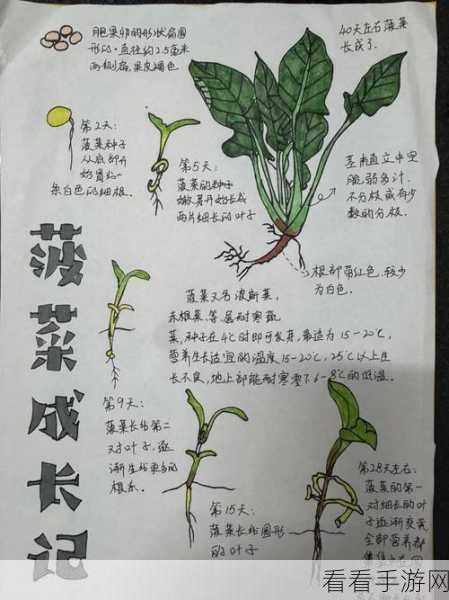 胞果卵的形状扁圆
形的，直径约2.5毫米
两侧扁，果皮褐色
40天左右菠菜
长成了.
第2天：
菠菜种子
从底部开
米白色的细根.
第5天：
菠菜的种子
两片细长的叶子
茎部直立中空
脆弱多汁.
不分枝或有少
数的分枝.
根部带红色,较少
为白色.
菠菜又名波斯菜,
菜,种子在4℃时即可发芽,最适为15-20℃,
营养生长适宜的温度15-20℃,25℃以上生
长不良,地上部能耐寒零下6-8℃的低温.
菠菜成长记
第9天：
菠菜长出第二
对叶子,逐
渐生出更多的
根系.
第15天：
菠菜长出圆形
的叶子
第28天左右：
菠菜的第一
对细长的叶
子逐渐变黄
全部营养都
看看手游网